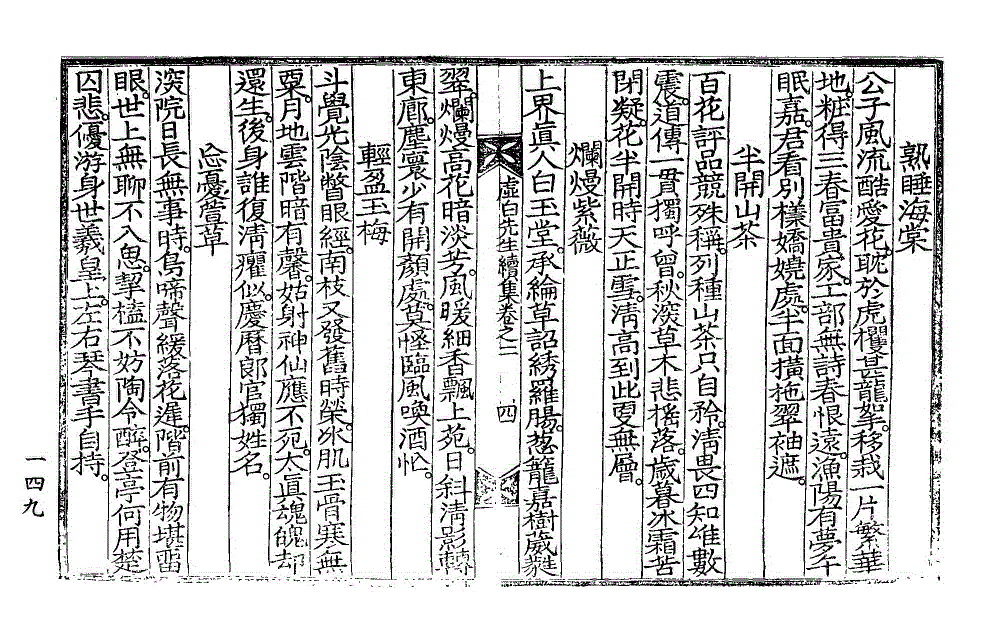 熟睡海棠
公子風流酷愛花。耽於虎攫甚龍拏。移栽一片繁華
地。粧得三春富貴家。工部無詩春恨遠。漁陽有夢午
眠嘉。君看別樣嬌嬈處。半面橫拖翠袖遮。
半開山茶
百花評品競殊稱。列種山茶只自矜。淸畏四知雄數
震。道傳一貫獨呼曾。秋深草木悲搖落。歲暮冰霜苦
閉凝。花半開時天正雪。淸高到此更無層。
爛熳紫薇
上界眞人白玉堂。承綸草詔綉羅腸。葱籠嘉樹葳蕤
翠。爛熳高花暗淡芳。風暖細香飄上苑。日斜淸影轉
東廊。塵寰少有開顏處。莫恠臨風喚酒忙。
輕盈玉梅
斗覺光陰瞥眼經。南枝又發舊時榮。冰肌玉骨寒無
粟。月地雲階暗有馨。姑射神仙應不死。太眞魂魄却
還生。後身誰復淸癯似。慶曆郞官獨姓名。
忘憂萱草
深院日長無事時。鳥啼聲緩落花遲。階前有物堪留
眼。世上無聊不入思。挈榼不妨陶令醉。登亭何用楚
囚悲。優游身世羲皇上。左右琴書手自持。
虛白先生續集卷之二
四
一四九